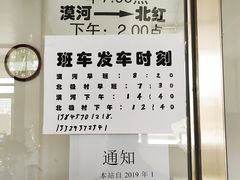 漠河——北红
下午：2.00点
班车发车时刻
漠河早班：8:20
北极村早班：7:30
漠河下午：14:40
北极村下午：12:40
通知
本站自 2019 年 1